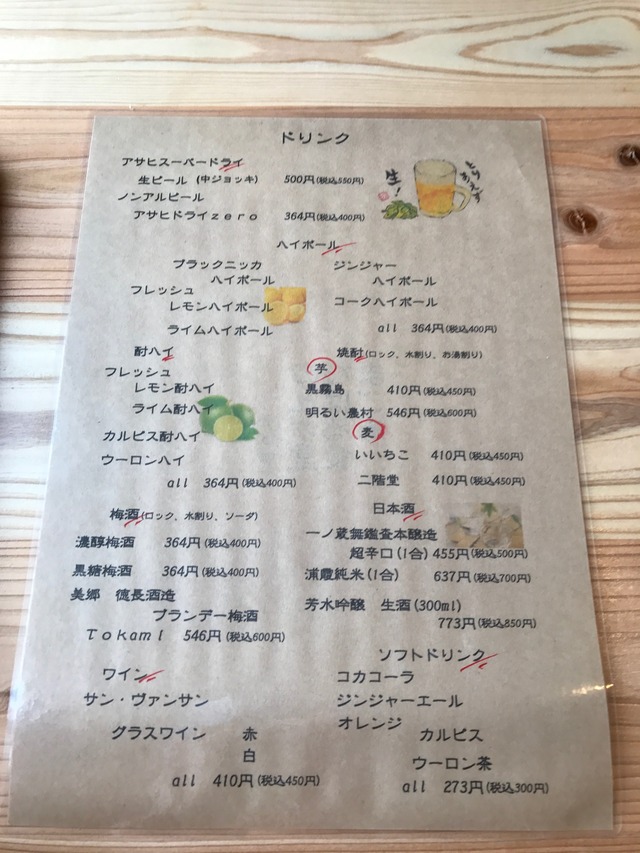 ドリンク
アサヒスーパードライ
生ビール (中ジョッキ) 500円(税込550円)
ノンアルビール
アサヒドライzero 364円(税込400円)
生!
とりあえず
ハイボール
ブラックニッカ
ハイボール
フレッシュ
レモンハイボール
ライムハイボール
ジンジャー
ハイボール
コークハイボール
all 364円(税込400円)
酎ハイ
フレッシュ
レモン酎ハイ
ライム酎ハイ
カルピス酎ハイ
ウーロンハイ
all 364円(税込400円)
焼酎(ロック、水割り、お湯割り)
芋
黒霧島 410円(税込450円)
明るい農村 546円(税込600円)
麦
いいちこ 410円(税込450円)
二階堂 410円(税込450円)
梅酒(ロック、水割り、ソーダ)
濃醇梅酒 364円(税込400円)
黒糖梅酒 364円(税込400円)
美郷 徳長酒造
ブランデー梅酒
Tokami 546円(税込600円)
日本酒
一ノ蔵無鑑査本醸造
超辛口(1合) 455円(税込500円)
浦霞純米(1合) 637円(税込700円)
芳水吟醸 生酒(300ml)
773円(税込850円)
ワイン
サン・ヴァンサン
グラスワイン 赤
白
all 410円(税込450円)
ソフトドリンク
コカコーラ
ジンジャーエール
オレンジ
カルピス
ウーロン茶
all 273円(税込300円)